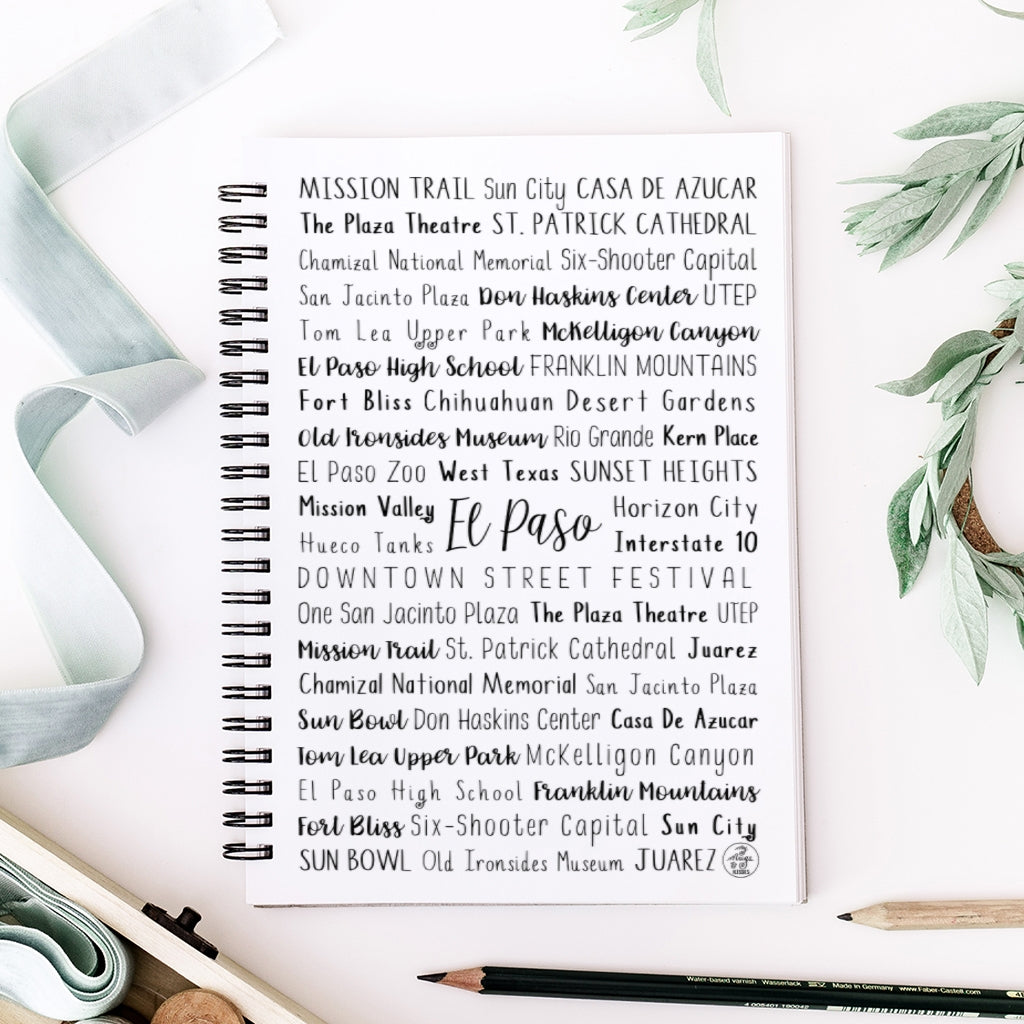 MISSION TRAIL Sun City CASA DE AZUCAR
The Plaza Theatre ST. PATRICK CATHEDRAL
Chamizal National Memorial Six-Shooter Capital
San Jacinto Plaza Don Haskins Center UTEP
Tom Lea Upper Park McKelligon Canyon
El Paso High School FRANKLIN MOUNTAINS
Fort Bliss Chihuahuan Desert Gardens
Old Ironsides Museum Rio Grande Kern Place
El Paso Zoo West Texas SUNSET HEIGHTS
Mission Valley El Paso Horizon City
Hueco Tanks Interstate 10
DOWNTOWN STREET FESTIVAL
One San Jacinto Plaza The Plaza Theatre UTEP
Mission Trail St. Patrick Cathedral Juarez
Chamizal National Memorial San Jacinto Plaza
Sun Bowl Don Haskins Center Casa De Azucar
Tom Lea Upper Park McKelligon Canyon
El Paso High School Franklin Mountains
Fort Bliss Six-Shooter Capital Sun City
SUN BOWL Old Ironsides Museum JUAREZ
Water-based varnish Wasserlack Made in Germany www.Faber-Castell.com
4 005401 190042